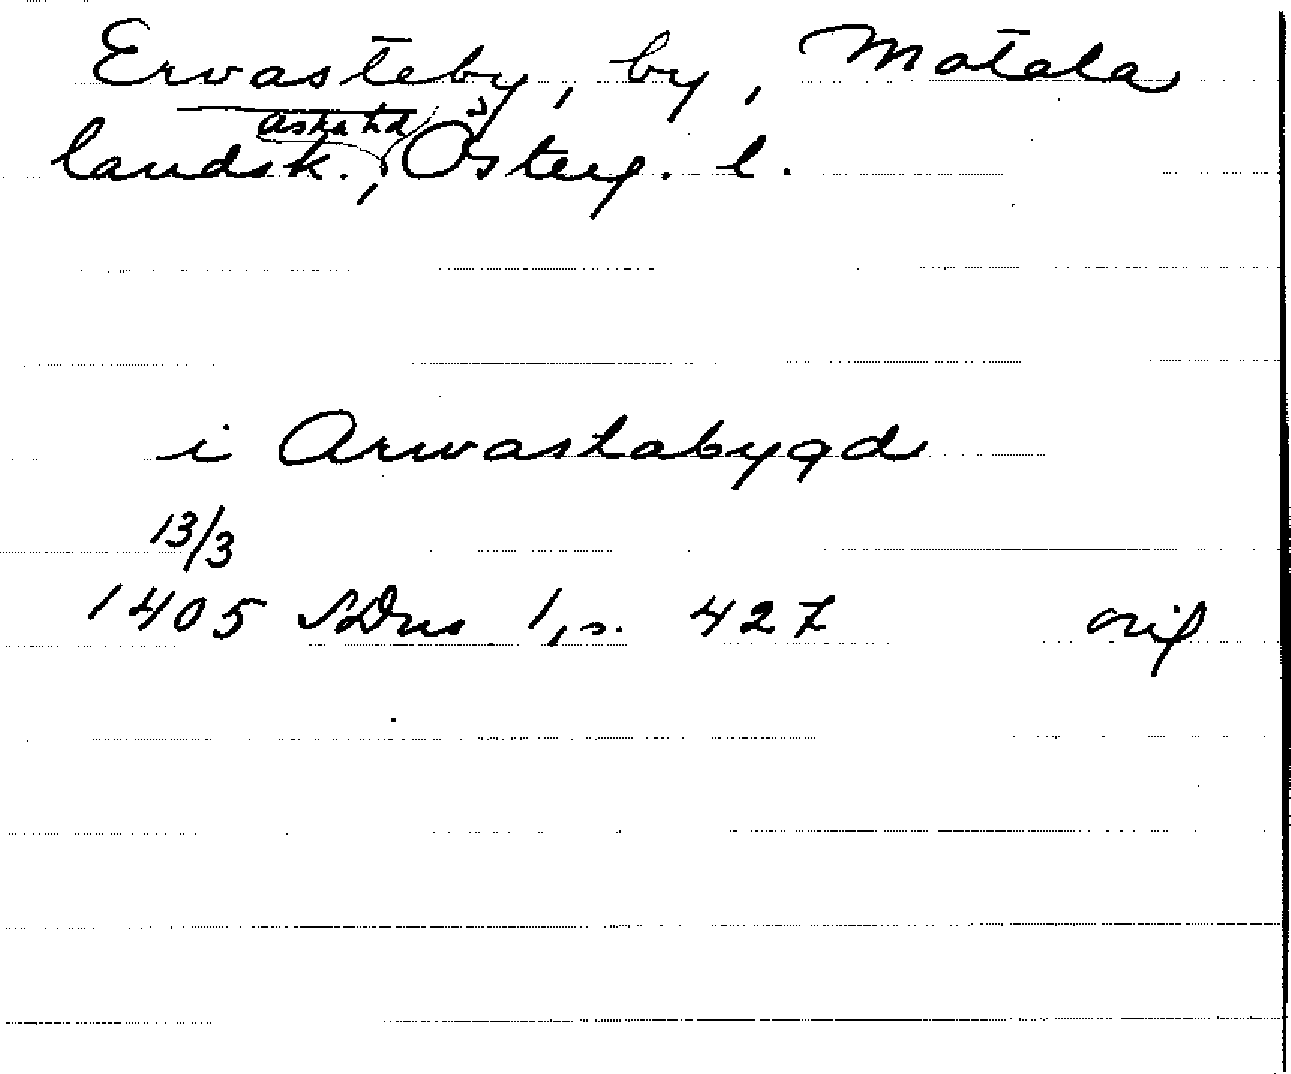 Ervasteby, by, Motala
landsk., Aska hd, Österg. l.
i Arwastabygd
13/3
1405 SDns 1, s. 427 orig